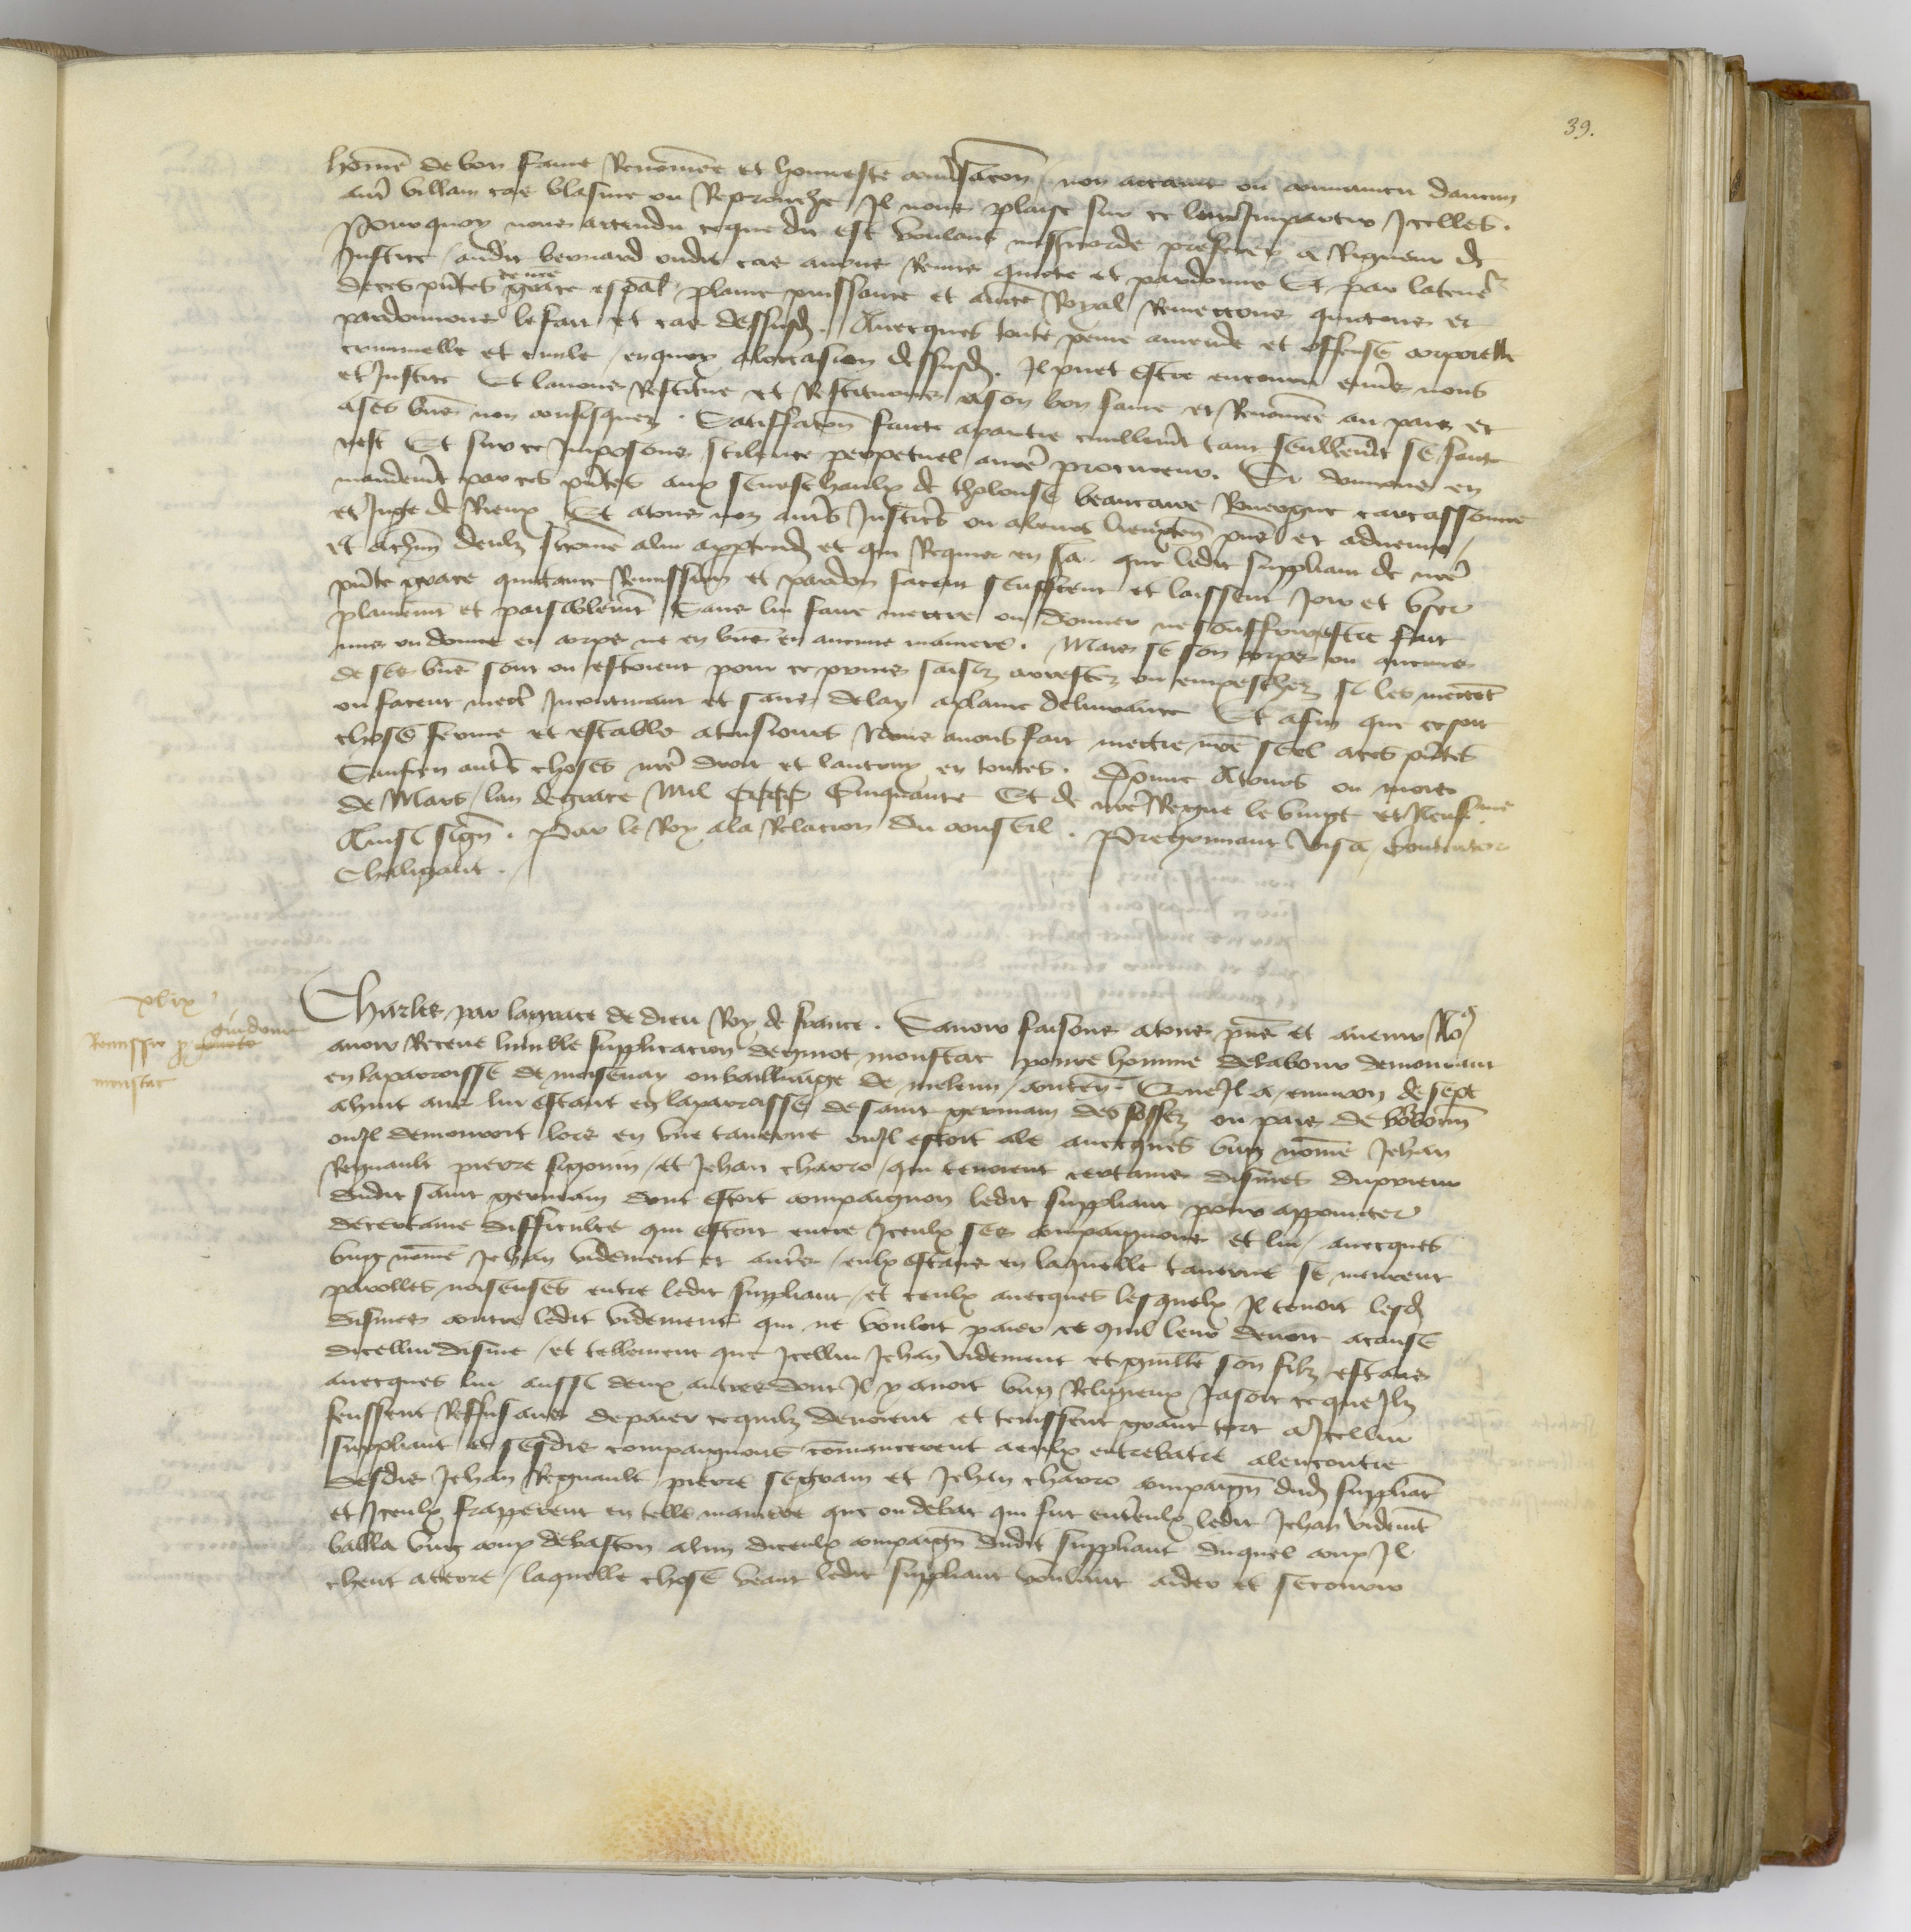 39.
home de bon fame Renomee et honneste conv̾sacon / non actaint ou convaincu daucun
aut̃ villain cas blasme ou Reprouche / Il nous plaise sur ce leur Impartir / Icelles .
Pourquoy nous actendu ceque dit est voulans mis̃icorde preferer a Rigueur de
Justice / audit bernard oudit cas avons Remis quicte et pardonne Et par la teneur
de ces p̃ntes de n̾re grace esp̃al plaine puissance et aucte Royal Remectons quictons et
pardonnons le fait et cas dessusd. Avecques toute peine amende et offense corporelle
criminelle et civile / en quoy aloccasion dessusd. Il puet estre encouru env̾s nous
et Justice Et lavons Restitue et Restituons a son bon fame et Renomee au pais et
a ses biẽs non confisquez . Satisfacon faicte a partie civillemt tant seullemt se faicte
nest Et sur ce Imposons scilence perpetuel a nr̃e procureur . Si donnons en
mandemt par ces p̃ntes aux seneschaulx de tholouse beaucaire Rouergue carcassonne
et Juge de Rieux Et a tous noz aut̃s Justicĩs ou a leurs lieuxten̄ p̃ns et advenir /
et a chũn deulx si come a lui appartiendr̃ et qui Requis en sa . que ledit suppliant de nr̃e
p̃nte grace quictance Remission et pardon facent seuffrent et laissent Joir et user
plainemt et paisiblemt Sans lui faire mectre ou donner ne souffrir estre fait
mis ou donne en corps ne en biẽs en aucune maniere . Mais se son corps ou aucuns
de ses biẽs sont ou estoient pour ce prins saisiz arrestez ou empeschez si les mectẽt
ou facent mectr̃ Incontinant et sans delay a plaine delivrance Et afin que ce soit
chose ferme et estable a tousjours Nous avons fait mectre nr̃e seel a ces p̃ntes
Sauf en aut̃s choses nr̃e droit et lautruy en toutes . Donne A tours ou mois
de Mars / lan de grace Mil CCCC Cinquante Et de nr̃e Regne le vingt et Neufsme
Ainsi sign̄ . Par le Roy a la Relacion du conseil . Pregrimaut Visa Contentor
Chaligaut .
xlix
Remissio p̱ guidone
guioto
monstac
Charles par la grace de dieu Roy de france . Savoir faisons a tous p̃ns et avenir No9
avoir Receue lumble supplicacion de guiot monstac povre homme de labour demourant
en la parroisse de moisenay ou bailliaige de melun / conten̄ . Que Il a / environ de sept
a huit ans lui estant en la parroisse de saint germain des fossez ou pais de bo'bonn̄
ou Il demouroit lors en une taverne ou Il estoit ale avecques ung nomme Jehan
Regnault pierre sigonin / et Jehan charro / qui tenoient certaines dismes du prieur
dudit saint germain dont estoit compaignon ledit suppliant pour appointer
de certaine difficulte qui estoit entre Iceulx ses compaignons et lui / avecques
ung nomme Jehan videment et aut̃s / eulx estans en laquelle taverne se meurent
parolles noiseuses entre ledit suppliant / et ceulx avecques lesquelx Il tenoit lesd
dismes contre ledit videment qui ne vouloit paier ce quil leur devoit a cause
dicellui disme / et tellement que Icellui Jehan videment et guill̃e son filz estans
avecques lui aussi deux autres dont Il y avoit ung Religieux Jasoit ce que Ilz
feussent Reffusans de paier ce quilz devoient et tenissent grant tort a Icellui
suppliant et sesdis compaignons comancerent a eulx entrebatre alencontre
desdis Jehan Regnault pierre segoain et Jehan charro compaign̄ dud suppliãt
et Iceulx frapperent en telle maniere que ou debat qui fut ent̾ eulx ledit Jehan videmt
bailla ung coup de baston a lun diceulx compaign̄ dudit suppliant duquel coup Il
cheut a terre / laquelle chose veant ledit suppliant voulant aider et secourir